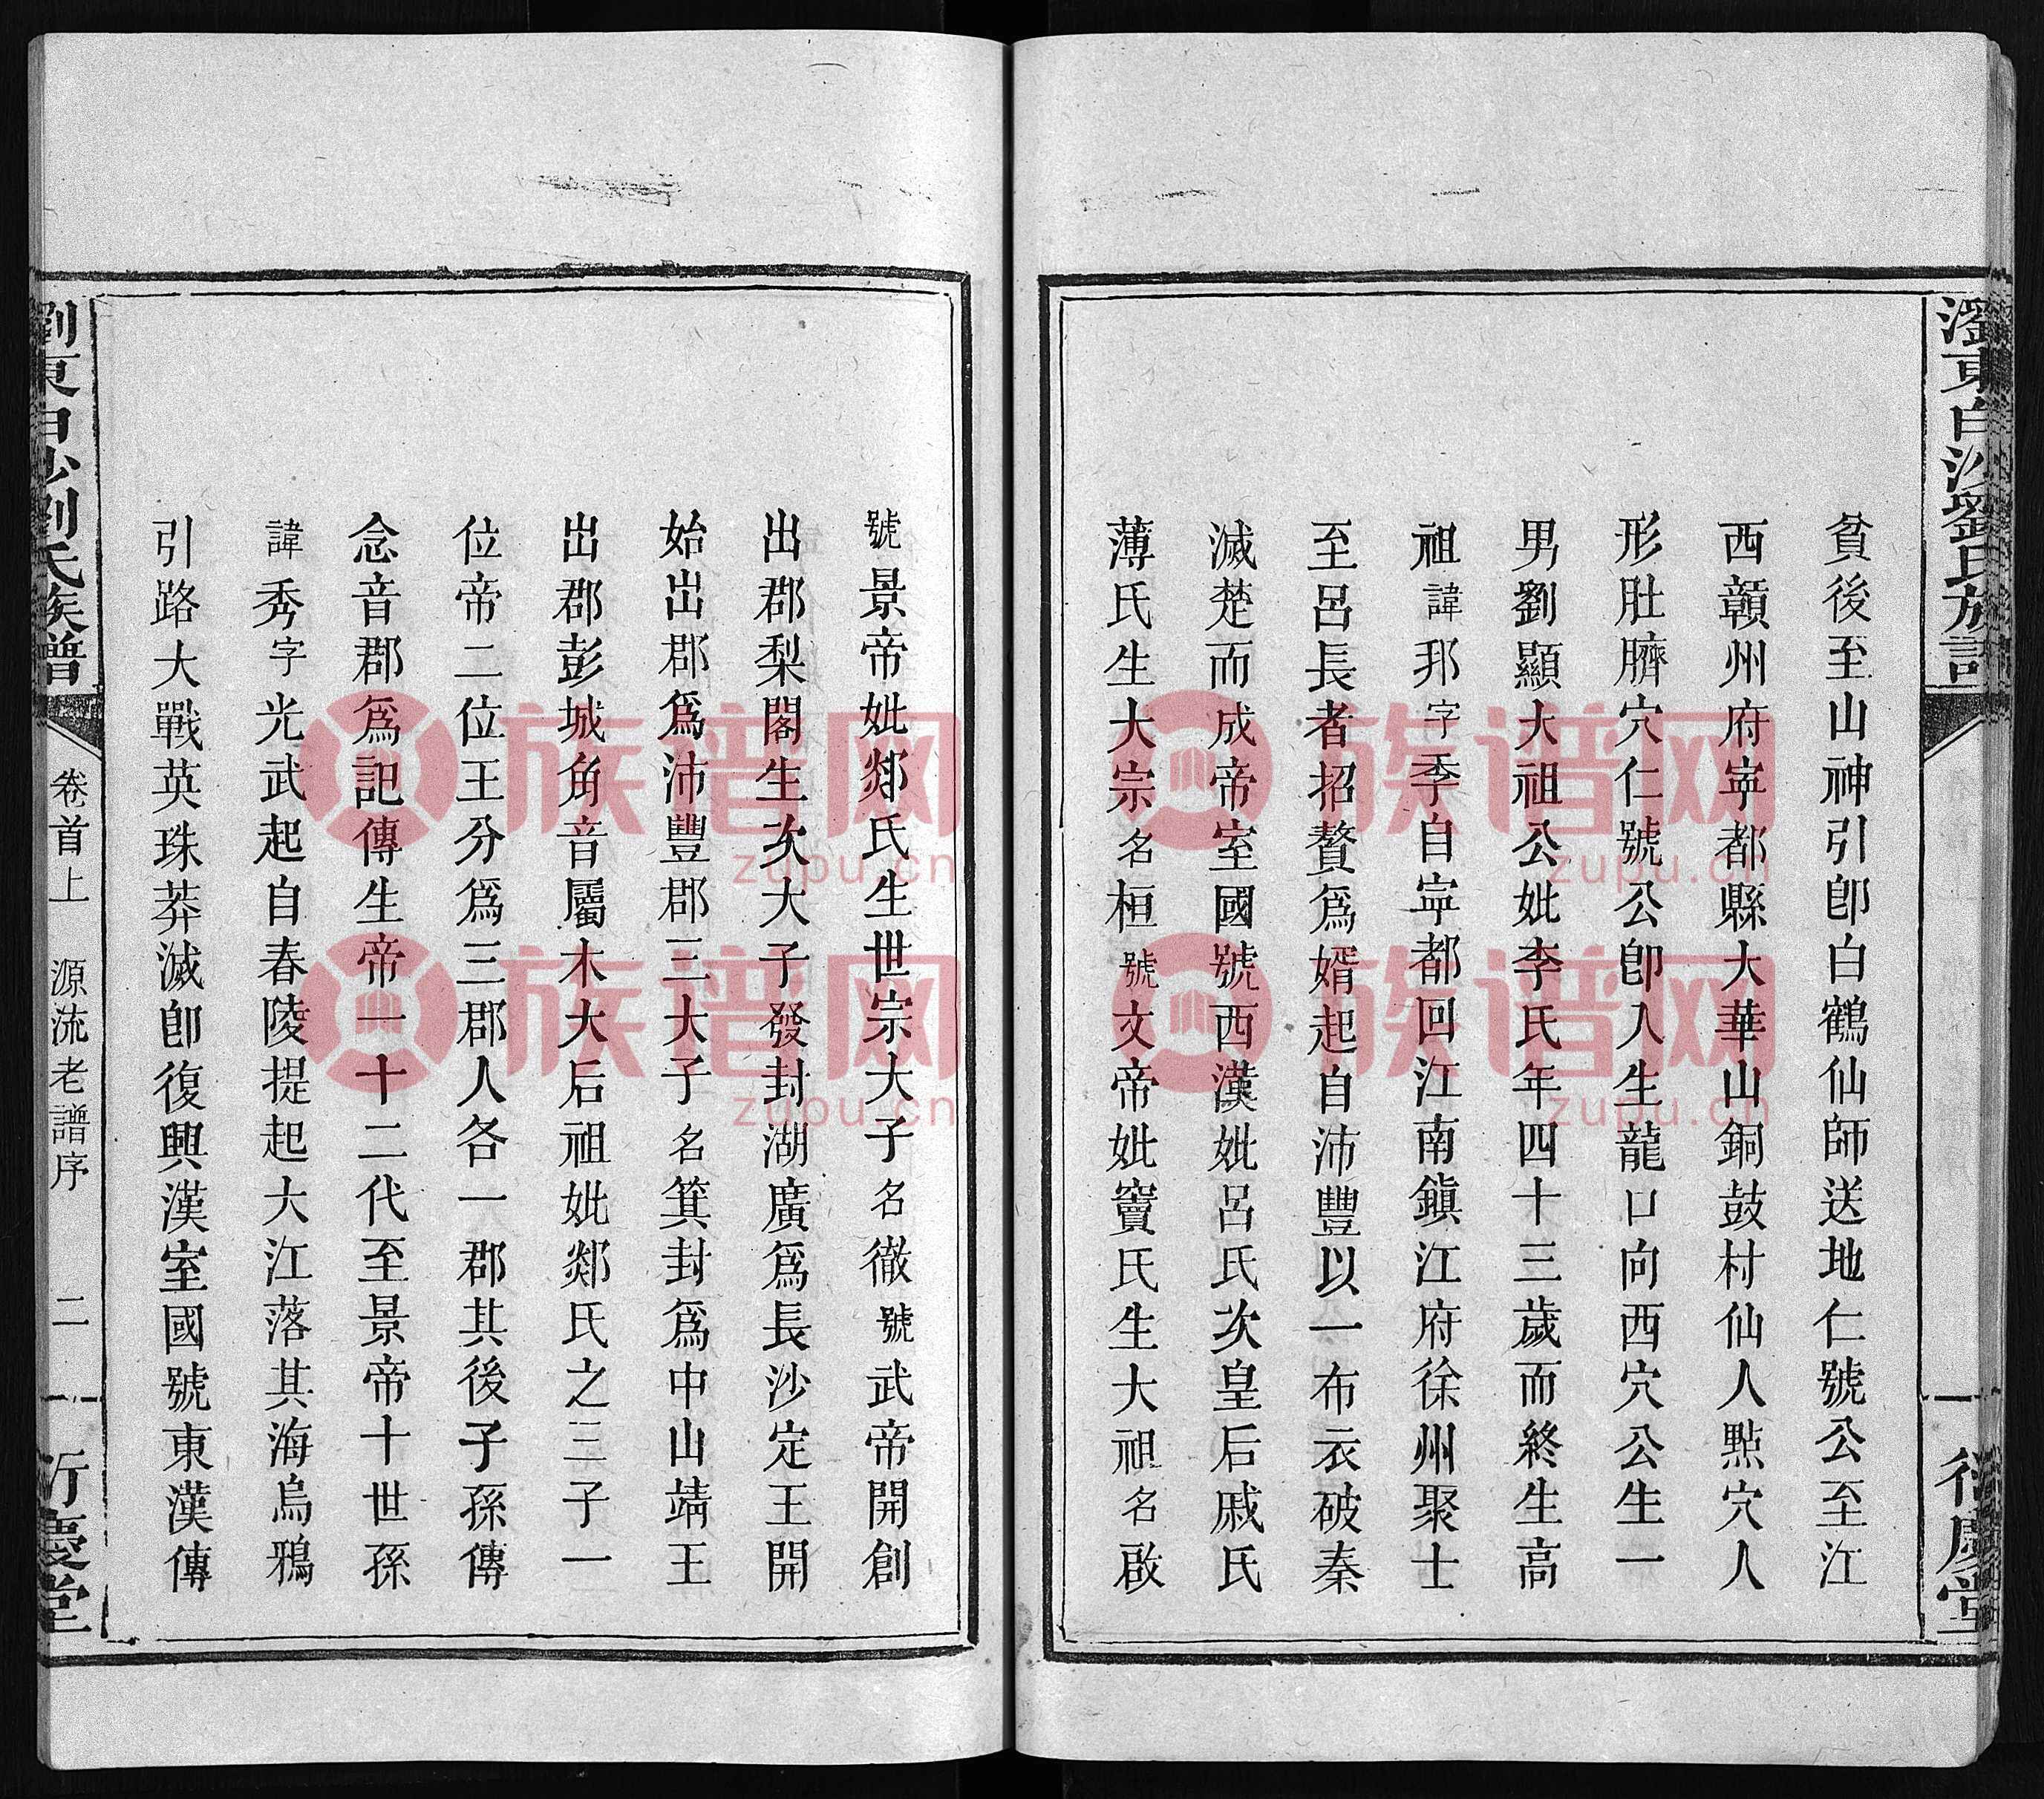 貧後至山神引卽白鶴仙師送地仁號公至江
西贛州府寧都縣大華山銅鼓村仙人點穴人
形肚臍穴仁號公卽入生龍口向西穴公生一
男劉顯大祖公妣李氏年四十三歲而終生高
祖諱邦字季自寧都回江南鎭江府徐州聚士
至呂長者招贅爲婿起自沛豐以一布衣破秦
滅楚而成帝室國號西漢妣呂氏次皇后戚氏
薄氏生大宗名桓號文帝妣竇氏生大祖名啟
號景帝妣郯氏生世宗大子名徹號武帝開創
出郡梨閣生次大子發封湖廣爲長沙定王開
始出郡爲沛豐郡三大子名箕封爲中山靖王
出郡彭城角音屬木大后祖妣郯氏之三子一
位帝二位王分爲三郡人各一郡其後子孫傳
念音郡爲記傳生帝一十二代至景帝十世孫
諱秀字光武起自春陵提起大江落其海烏鴉
引路大戰英珠莽滅卽復興漢室國號東漢傳
劉東白沙劉氏族譜
卷首上 源流老譜序 二
慶堂
族谱网
zupu.cn
族谱网
zupu.cn
族谱网
zupu.cn
族谱网
zupu.cn